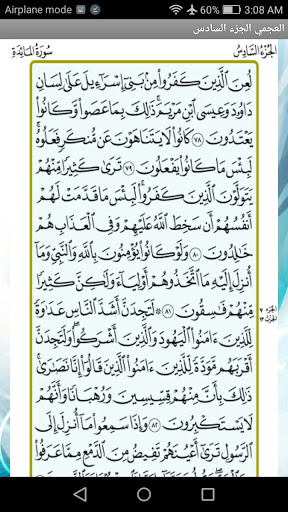 Airplane mode 77% 3:08 AM
العجمي الجزء السادس
الجزء السادس سورة المائدة
لُعِنَ ٱلَّذِينَ كَفَرُوا۟ مِنۢ بَنِىٓ إِسْرَٰٓءِيلَ عَلَىٰ لِسَانِ
دَاوُۥدَ وَعِيسَى ٱبْنِ مَرْيَمَ ۚ ذَٰلِكَ بِمَا عَصَوا۟ وَّكَانُوا۟
يَعْتَدُونَ ٧٨ كَانُوا۟ لَا يَتَنَاهَوْنَ عَن مُّنكَرٍ فَعَلُوهُ ۚ
لَبِئْسَ مَا كَانُوا۟ يَفْعَلُونَ ٧٩ تَرَىٰ كَثِيرًا مِّنْهُمْ
يَتَوَلَّوْنَ ٱلَّذِينَ كَفَرُوا۟ ۚ لَبِئْسَ مَا قَدَّمَتْ لَهُمْ
أَنفُسُهُمْ أَن سَخِطَ ٱللَّهُ عَلَيْهِمْ وَفِى ٱلْعَذَابِ هُمْ
خَٰلِدُونَ ٨٠ وَلَوْ كَانُوا۟ يُؤْمِنُونَ بِٱللَّهِ وَٱلنَّبِىِّ وَمَآ
أُنزِلَ إِلَيْهِ مَا ٱتَّخَذُوهُمْ أَوْلِيَآءَ وَلَٰكِنَّ كَثِيرًا
مِّنْهُمْ فَٰسِقُونَ ٨١ ۞ لَتَجِدَنَّ أَشَدَّ ٱلنَّاسِ عَدَٰوَةً
لِّلَّذِينَ ءَامَنُوا۟ ٱلْيَهُودَ وَٱلَّذِينَ أَشْرَكُوا۟ ۖ وَلَتَجِدَنَّ
أَقْرَبَهُم مَّوَدَّةً لِّلَّذِينَ ءَامَنُوا۟ ٱلَّذِينَ قَالُوٓا۟ إِنَّا
نَصَٰرَىٰ ۚ ذَٰلِكَ بِأَنَّ مِنْهُمْ قِسِّيسِينَ وَرُهْبَانًا وَأَنَّهُمْ
لَا يَسْتَكْبِرُونَ ٨٢ وَإِذَا سَمِعُوا۟ مَآ أُنزِلَ إِلَى
ٱلرَّسُولِ تَرَىٰٓ أَعْيُنَهُمْ تَفِيضُ مِنَ ٱلدَّمْعِ مِمَّا عَرَفُوا۟